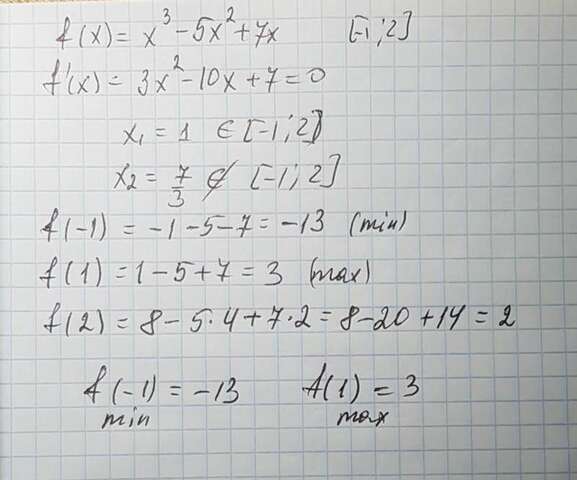 f(x) = x³ - 5x² + 7x [-1; 2]
f'(x) = 3x² - 10x + 7 = 0
x₁ = 1 ∈ [-1; 2]
x₂ = 7/3 ∉ [-1; 2]
f(-1) = -1 - 5 - 7 = -13 (min)
f(1) = 1 - 5 + 7 = 3 (max)
f(2) = 8 - 5·4 + 7·2 = 8 - 20 + 14 = 2
f(-1) = -13 f(1) = 3
min max